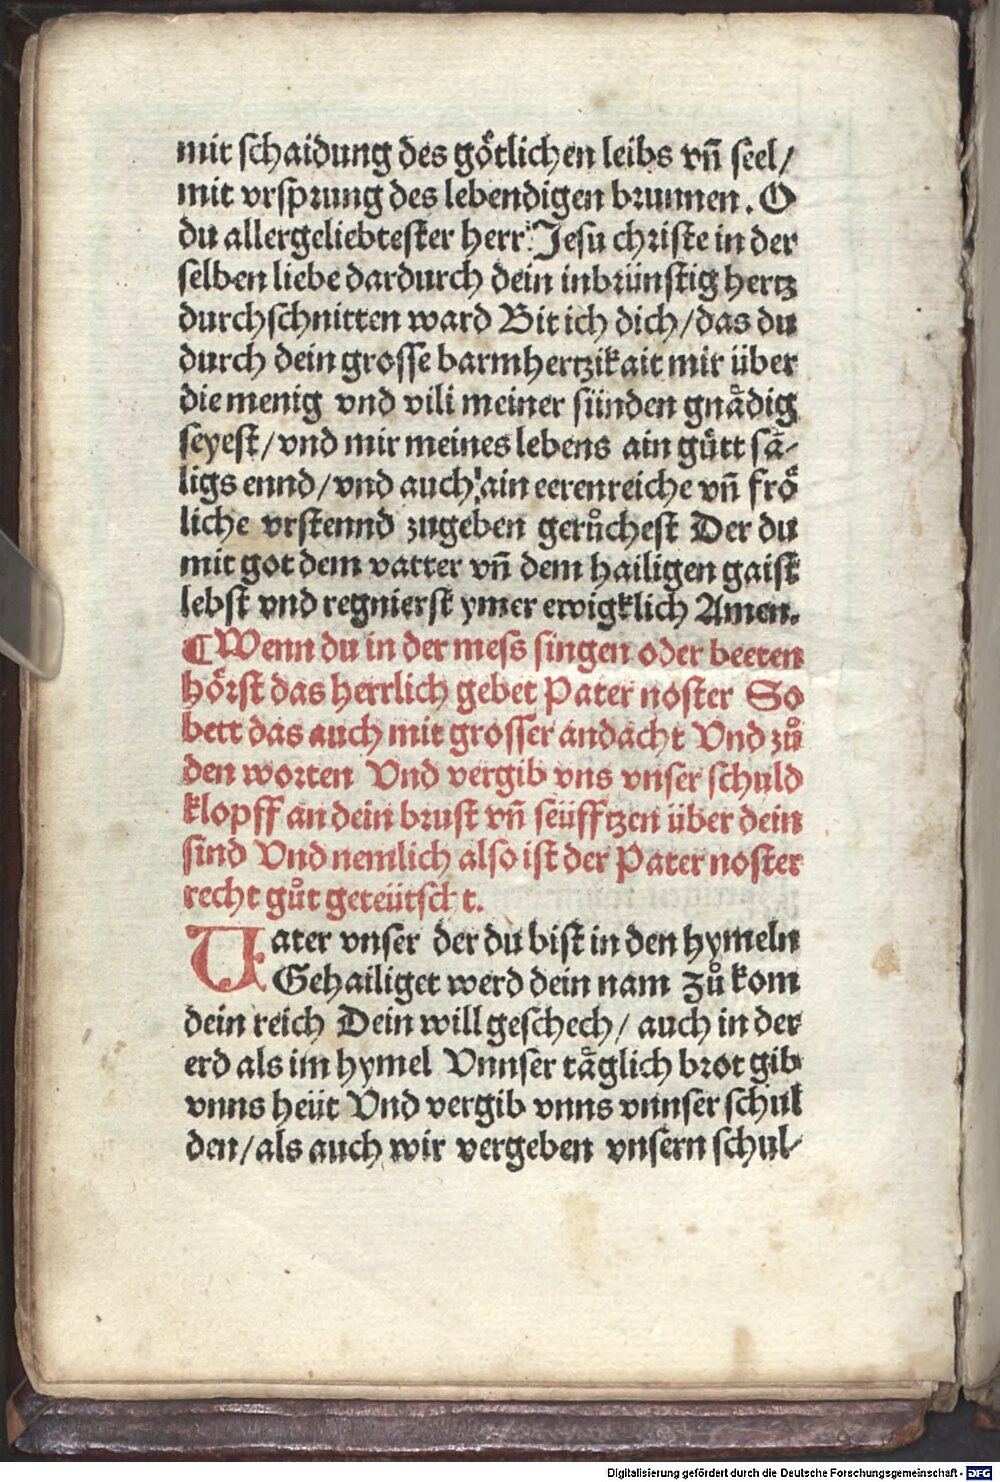 mit schaidung des goͤtlichen leibs vñ seel/
mit vrsprung des lebendigen brunnen. O
du allergeliebtester herr Jesu christe in der
selben liebe dardurch dein inbrünstig hertz
durchschnitten ward Bit ich dich/das du
durch dein grosse barmhertzikait mir über
die menig vnd vili meiner sünden gnaͤdig
seyest/vnd mir meines lebens ain guͤtt saͤ-
ligs ennd/vnd auch ain eerenreiche vñ froͤ
liche vrstennd zugeben geruͦchest Der du
mit got dem vatter vñ dem hailigen gaist
lebst vnd regnierst ymer ewigklich Amen.
¶Wenn du in der mess singen oder beeten
hoͤrst das herrlich gebet Pater noster So
bett das auch mit grosser andacht Vnd zuͦ
den worten Vnd vergib vns vnser schuld
klopff an dein brust vñ seüfftzen über dein
sind Vnd nemlich also ist der Pater noster
recht guͦt geteütscht.
Vater vnser der du bist in den hymeln
Gehailiget werd dein nam Zuͦ kom
dein reich Dein will geschech/ auch in der
erd als im hymel Vnnser taͤglich brot gib
vnns heüt Vnd vergib vnns vnnser schul
den/als auch wir vergeben vnsern schul-
Digitalisierung gefördert durch die Deutsche Forschungsgemeinschaft - DFG